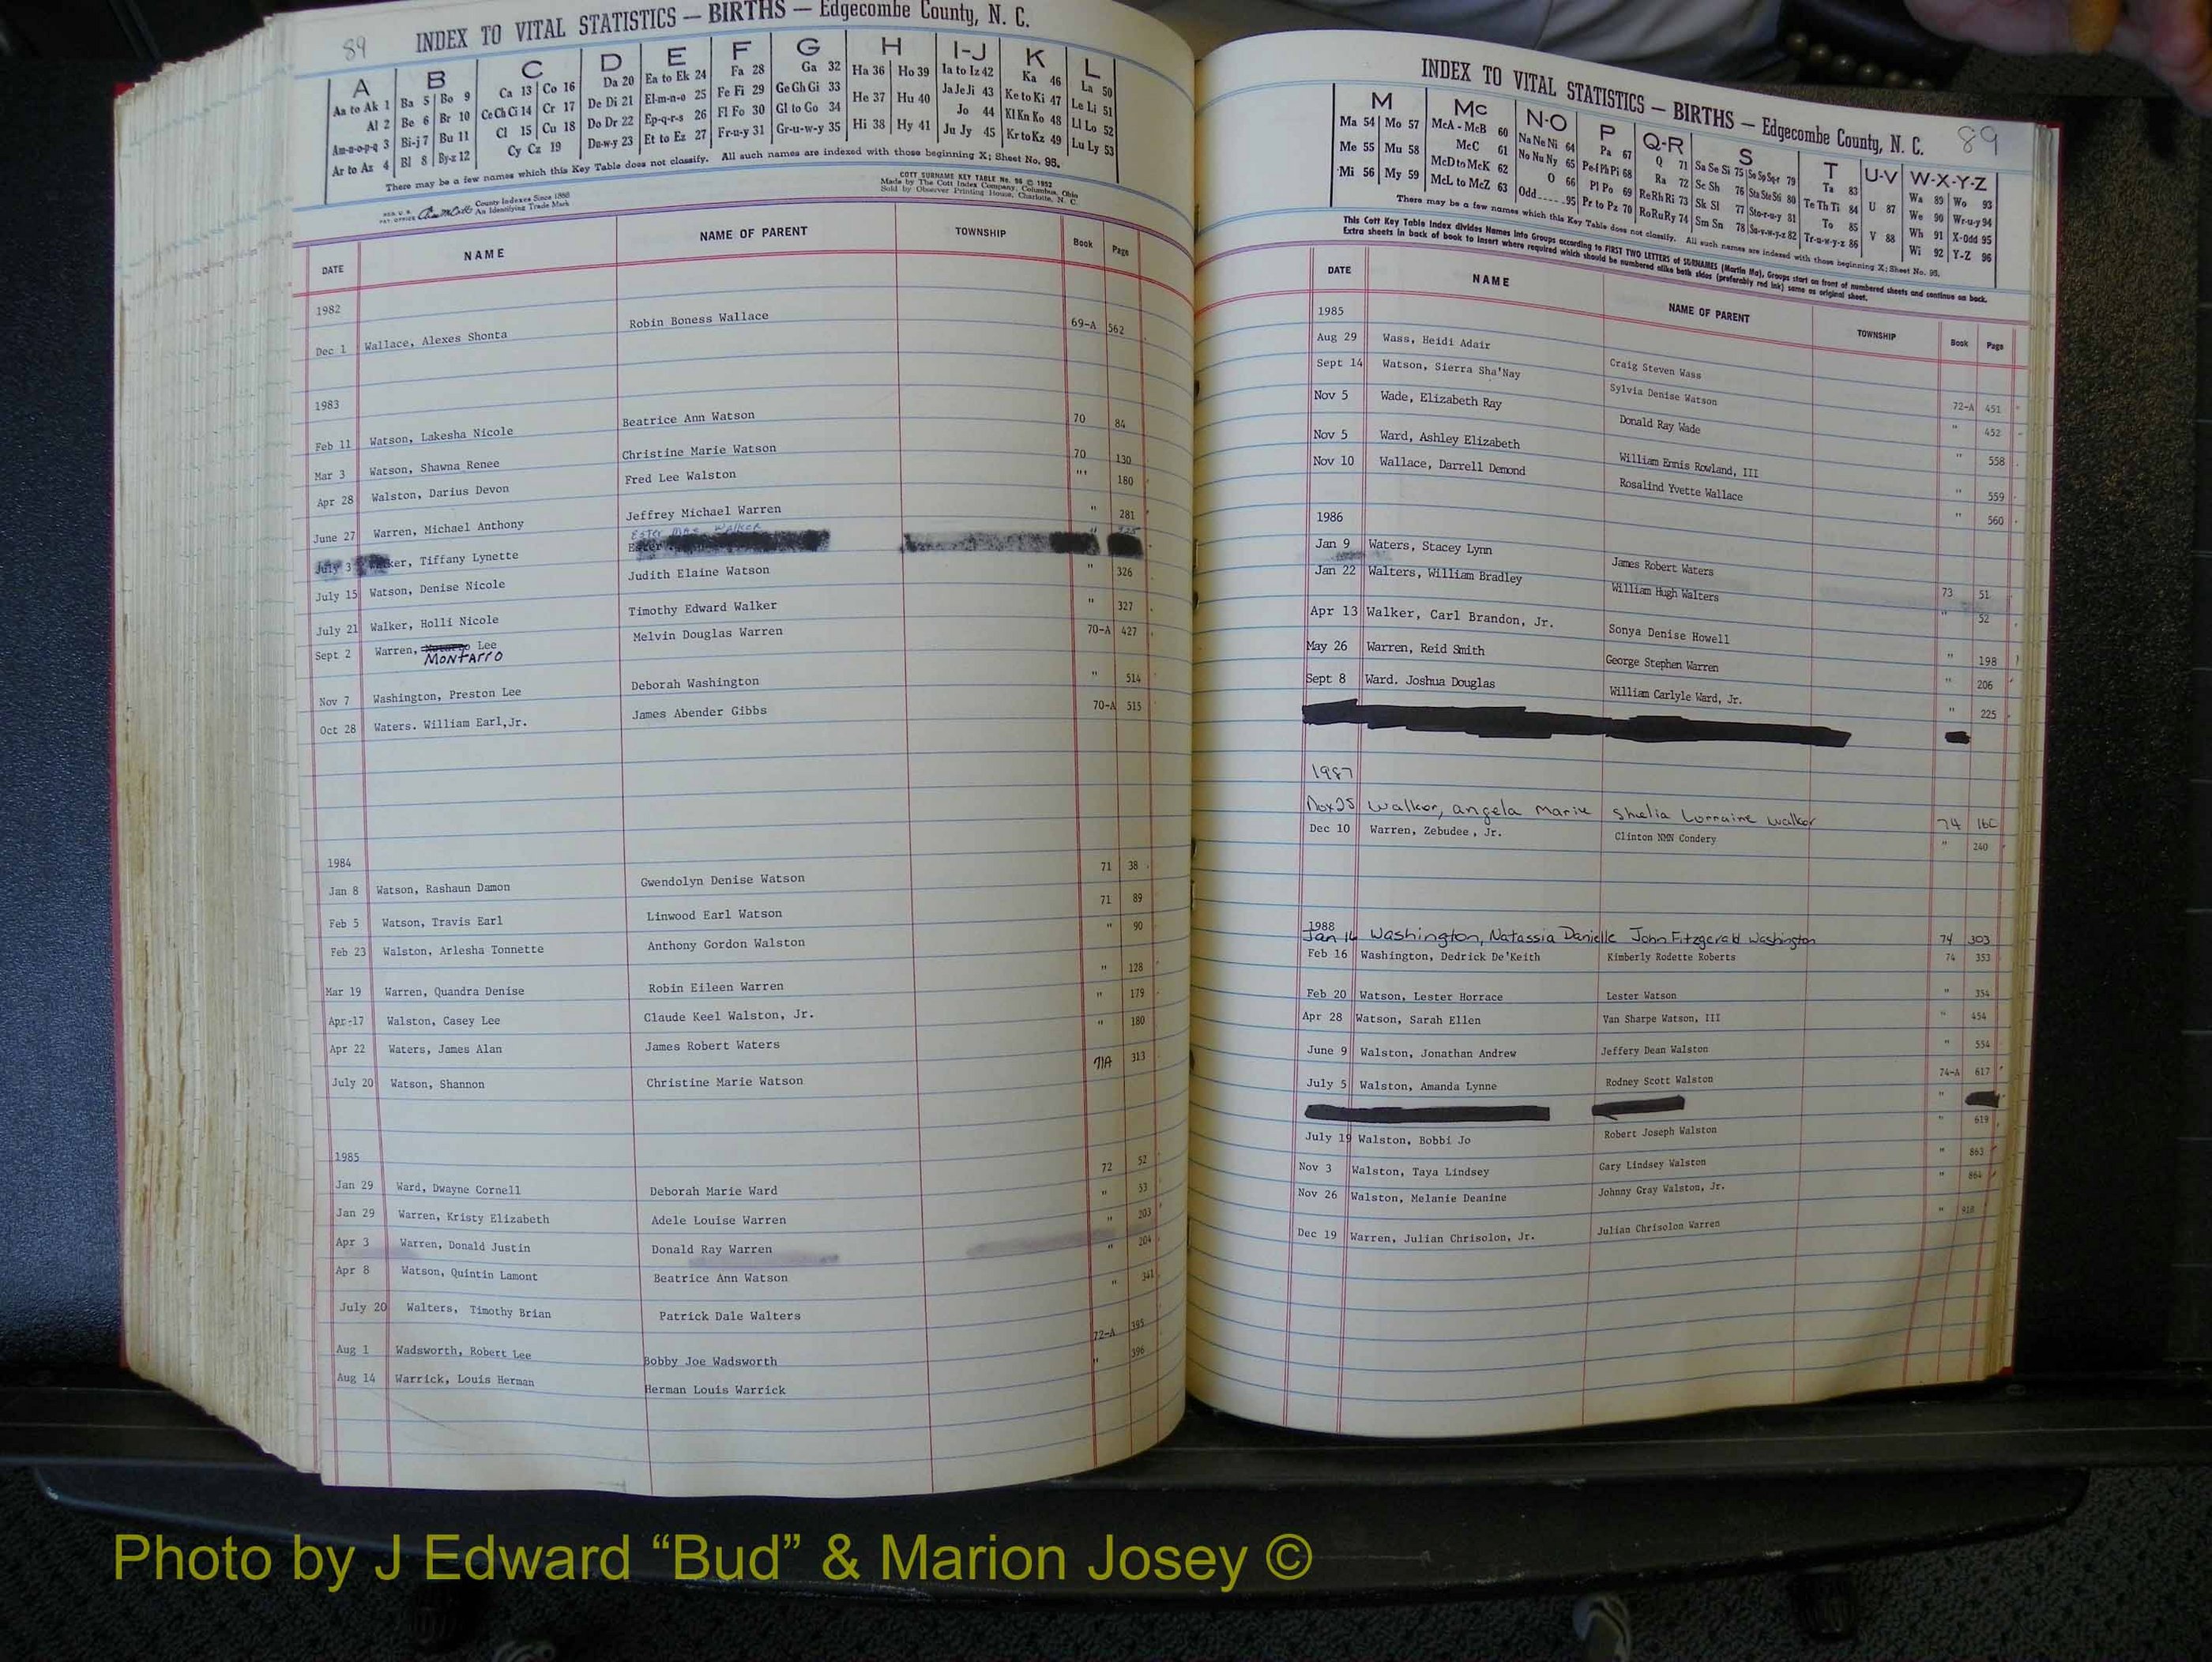 89
INDEX TO VITAL STATISTICS — BIRTHS — Edgecombe County, N. C.
A B C D E F G H I-J K L
Aa to Ak 1 Ba 5 Bo 9 Ca 13 Co 16 Da 20 Ea to Ek 24 Fa 28 Ga 32 Ha 36 Ho 39 Ia to Iz 42 Ka 46 La 50
Al 2 Be 6 Br 10 Ce Ch Ci 14 Cr 17 De Di 21 El-m-n-o 25 Fe Fi 29 Ge Gh Gi 33 He 37 Hu 40 Ja Je Ji 43 Ke to Ki 47 Le Li 51
Am-n-o-p-q 3 Bi-j 7 Bu 11 Cl 15 Cu 18 Do Dr 22 Ep-q-r-s 26 Fl Fo 30 Gl to Go 34 Hi 38 Hy 41 Jo 44 Kl Kn Ko 48 Ll Lo 52
Ar to Az 4 Bl 8 By-z 12 Cy Cz 19 Du-w-y 23 Et to Ez 27 Fr-u-y 31 Gr-u-w-y 35 Ju Jy 45 Kr to Kz 49 Lu Ly 53
There may be a few names which this Key Table does not classify. All such names are indexed with those beginning X; Sheet No. 95.
County Indexes Since 1888
An Identifying Trade Mark
COTT SURNAME KEY TABLE No. 96 © 1952
Made by The Cott Index Company, Columbus, Ohio
Sold by Observer Printing House, Charlotte, N. C.
DATE NAME NAME OF PARENT TOWNSHIP Book Page
1982
Dec 1 Wallace, Alexes Shonta Robin Boness Wallace 69-A 562
1983
Feb 11 Watson, Lakesha Nicole Beatrice Ann Watson 70 84
Mar 3 Watson, Shawna Renee Christine Marie Watson 70 130
Apr 28 Walston, Darius Devon Fred Lee Walston "" 180
June 27 Warren, Michael Anthony Jeffrey Michael Warren " 281
Ester Mae Walker " 325
July 3 ker, Tiffany Lynette Ester
July 15 Watson, Denise Nicole Judith Elaine Watson " 326
July 21 Walker, Holli Nicole Timothy Edward Walker " 327
Sept 2 Warren, Lee Melvin Douglas Warren 70-A 427
MONTARRO
Nov 7 Washington, Preston Lee Deborah Washington " 514
Oct 28 Waters. William Earl,Jr. James Abender Gibbs 70-A 515
1984
Jan 8 Watson, Rashaun Damon Gwendolyn Denise Watson 71 38
Feb 5 Watson, Travis Earl Linwood Earl Watson 71 89
Feb 23 Walston, Arlesha Tonnette Anthony Gordon Walston " 90
Mar 19 Warren, Quandra Denise Robin Eileen Warren " 128
Apr-17 Walston, Casey Lee Claude Keel Walston, Jr. " 179
Apr 22 Waters, James Alan James Robert Waters " 180
July 20 Watson, Shannon Christine Marie Watson 71A 313
1985
Jan 29 Ward, Dwayne Cornell Deborah Marie Ward 72 52
Jan 29 Warren, Kristy Elizabeth Adele Louise Warren " 53
Apr 3 Warren, Donald Justin Donald Ray Warren " 203
Apr 8 Watson, Quintin Lamont Beatrice Ann Watson " 204
July 20 Walters, Timothy Brian Patrick Dale Walters " 341
Aug 1 Wadsworth, Robert Lee Bobby Joe Wadsworth 72-A 395
Aug 14 Warrick, Louis Herman Herman Louis Warrick " 396
INDEX TO VITAL STATISTICS — BIRTHS — Edgecombe County, N. C. 89
M Mc N-O P Q-R S T U-V W-X-Y-Z
Ma 54 Mo 57 McA - McB 60 Na Ne Ni 64 Pa 67 Q 71 Sa Se Si 75 So Sp Sq-r 79 Ta 83 U 87 Wa 89 Wo 93
Me 55 Mu 58 McC 61 No Nu Ny 65 Pe-f Ph Pi 68 Ra 72 Sc Sh 76 Sta Ste Sti 80 Te Th Ti 84 V 88 We 90 Wr-u-y 94
Mi 56 My 59 McD to McK 62 O 66 Pl Po 69 Re Rh Ri 73 Sk Sl 77 Sto-r-u-y 81 To 85 Wh 91 X-Odd 95
McL to McZ 63 Odd 95 Pr to Pz 70 Ro Ru Ry 74 Sm Sn 78 Su-v-w-y-z 82 Tr-u-w-y-z 86 Wi 92 Y-Z 96
There may be a few names which this Key Table does not classify. All such names are indexed with those beginning X; Sheet No. 95.
This Cott Key Table Index divides Names into Groups according to FIRST TWO LETTERS of SURNAMES (Martin Ma), Groups start on front of numbered sheets and continue on back.
Extra sheets in back of book to insert where required which should be numbered alike both sides (preferably red ink) same as original sheet.
DATE NAME NAME OF PARENT TOWNSHIP Book Page
1985
Aug 29 Wass, Heidi Adair Craig Steven Wass 72-A 451
Sept 14 Watson, Sierra Sha'Nay Sylvia Denise Watson " 452
Nov 5 Wade, Elizabeth Ray Donald Ray Wade " 558
Nov 5 Ward, Ashley Elizabeth William Ennis Rowland, III " 559
Nov 10 Wallace, Darrell Demond Rosalind Yvette Wallace " 560
1986
Jan 9 Waters, Stacey Lynn James Robert Waters 73 51
Jan 22 Walters, William Bradley William Hugh Walters " 52
Apr 13 Walker, Carl Brandon, Jr. Sonya Denise Howell " 198
May 26 Warren, Reid Smith George Stephen Warren " 206
Sept 8 Ward. Joshua Douglas William Carlyle Ward, Jr. " 225
1987
Nov 25 Walker, angela Marie Shelia Lorraine Walker 74 160
Dec 10 Warren, Zebudee, Jr. Clinton NMN Condery " 240
1988
Jan 14 Washington, Natassia Danielle John Fitzgerald Washington 74 303
Feb 16 Washington, Dedrick De'Keith Kimberly Rodette Roberts 74 353
Feb 20 Watson, Lester Horrace Lester Watson " 354
Apr 28 Watson, Sarah Ellen Van Sharpe Watson, III " 454
June 9 Walston, Jonathan Andrew Jeffery Dean Walston " 554
July 5 Walston, Amanda Lynne Rodney Scott Walston 74-A 617
"
July 19 Walston, Bobbi Jo Robert Joseph Walston " 619
Nov 3 Walston, Taya Lindsey Gary Lindsey Walston " 863
Nov 26 Walston, Melanie Deanine Johnny Gray Walston, Jr. " 864
Dec 19 Warren, Julian Chrisolon, Jr. Julian Chrisolon Warren " 918
Photo by J Edward “Bud” & Marion Josey ©